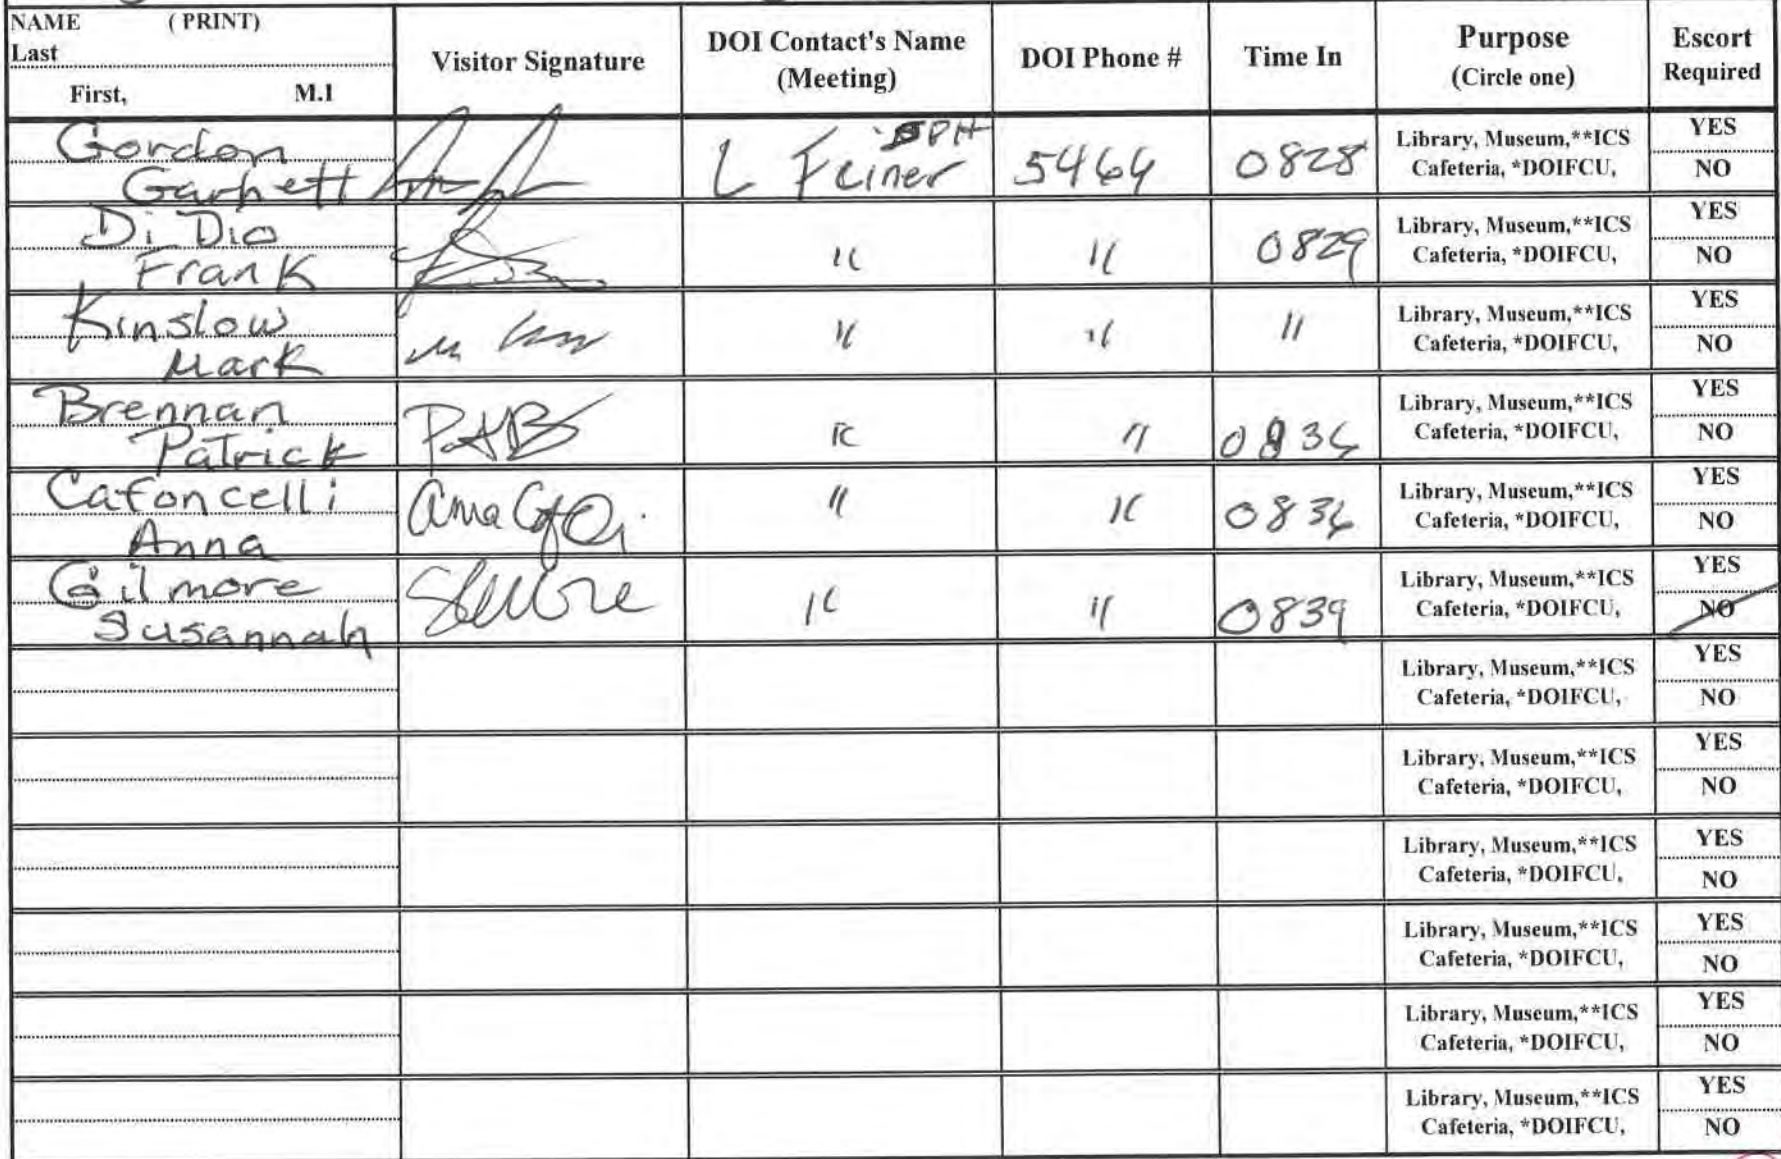 NAME ( PRINT)
Last
First, M.I
Visitor Signature
DOI Contact's Name
(Meeting)
DOI Phone #
Time In
Purpose
(Circle one)
Escort
Required
Gordon
Garhett
L Feiner
5464
0828
Library, Museum,**ICS
Cafeteria, *DOIFCU,
YES
NO
Di Dio
Frank
"
"
0829
Library, Museum,**ICS
Cafeteria, *DOIFCU,
YES
NO
Kinslow
Mark
"
"
"
Library, Museum,**ICS
Cafeteria, *DOIFCU,
YES
NO
Brennan
Patrick
PAB
"
"
Library, Museum,**ICS
Cafeteria, *DOIFCU,
YES
NO
Cafoncelli
Anna
"
"
0836
Library, Museum,**ICS
Cafeteria, *DOIFCU,
YES
NO
Gilmore
Susannah
"
"
0839
Library, Museum,**ICS
Cafeteria, *DOIFCU,
YES
NO
Library, Museum,**ICS
Cafeteria, *DOIFCU,
YES
NO
Library, Museum,**ICS
Cafeteria, *DOIFCU,
YES
NO
Library, Museum,**ICS
Cafeteria, *DOIFCU,
YES
NO
Library, Museum,**ICS
Cafeteria, *DOIFCU,
YES
NO
Library, Museum,**ICS
Cafeteria, *DOIFCU,
YES
NO
Library, Museum,**ICS
Cafeteria, *DOIFCU,
YES
NO